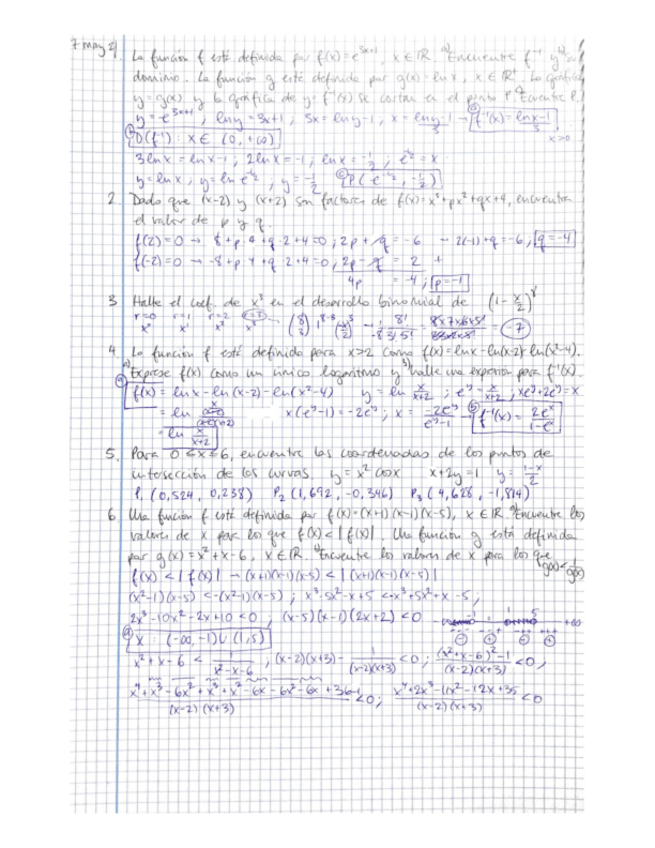 7 may 21
La función f está definida por f(x)=e^{3x+1}, x∈ℝ. a) Encuentre f⁻¹ y b) su
dominio. La función g está definida por g(x)=ln x, x∈ℝ⁺. La gráfica
y=g(x) y la gráfica de y=f⁻¹(x) se cortan en el punto P. c) Encuentre P.
y=e^{3x+1}, ln y=3x+1, 3x=ln y-1, x=\frac{ln y-1}{3} → a) f⁻¹(x)=\frac{ln x-1}{3}
b) D(f⁻¹): x∈(0,+∞) x>0
3 ln x = ln x-1; 2 ln x=-1; ln x=-\frac{1}{2}; e^{-1/2}=x
y=ln x, y=ln e^{-1/2}; y=-\frac{1}{2} c) P(e^{-1/2}, -\frac{1}{2})
2. Dado que (x-2) y (x+2) son factores de f(x)=x³+px²+qx+4, encuentra
el valor de p y q.
f(2)=0 → 8+p·4+q·2+4=0; 2p+q=-6 → 2(-1)+q=-6, q=-4
f(-2)=0 → -8+p·4+q·2+4=0; 2p-q=2 +
4p =-4; p=-1
3 Halle el coef. de x³ en el desarrollo binomial de (1-\frac{x}{2})⁸
r=0 r=1 r=2 r=3
x⁰ x¹ x² x³ (8 3) 1^{8-3} (\frac{x}{2})³ → \frac{1}{-8} \frac{8!}{3!5!} = \frac{8×7×6×5!}{8×3×2×5!} = -7
4. La función f está definida para x>2 como f(x)=ln x-ln(x-2)-ln(x²-4).
a) Exprese f(x) como un único logaritmo y b) halle una expresión para f⁻¹(x).
a) f(x)=ln x-ln(x-2)-ln(x²-4) y=ln \frac{x}{x+2}; e^y=\frac{x}{x+2}, xe^y+2e^y=x
=ln \frac{\frac{x}{(x-2)}}{(x-2)(x+2)} x(e^y-1)=-2e^y; x=\frac{-2e^y}{e^y-1} → b) f⁻¹(x)=\frac{2e^x}{1-e^x}
=ln \frac{x}{x+2}
5. Para 0≤x≤6, encuentre las coordenadas de los puntos de
intersección de las curvas y=x² cos x x+2y=1 y=\frac{1-x}{2}
P₁ (0,524, 0,238) P₂ (1,692, -0,346) P₃ (4,628, -1,814)
6 Una función f está definida por f(x)=(x+1)(x-1)(x-5), x∈ℝ a) Encuentre los
valores de x para los que f(x)<|f(x)|. Una función g está definida
por g(x)=x²+x-6, x∈ℝ. b) Encuentre los valores de x para los que g(x)<\frac{1}{g(x)}
f(x)<|f(x)| → (x+1)(x-1)(x-5)<|(x+1)(x-1)(x-5)|
(x²-1)(x-5)<-(x²-1)(x-5); x³-5x²-x+5<-x³+5x²+x-5;
2x³-10x²-2x+10<0, (x-5)(x-1)(2x+2)<0 -∞ -1 1 5 +∞
a) x: (-∞,-1)∪(1,5)
x²+x-6<\frac{1}{x²-x-6}; (x-2)(x+3)-\frac{1}{(x-2)(x+3)}<0; \frac{(x²+x-6)²-1}{(x-2)(x+3)}<0;
\frac{x⁴+x³-6x²+x³+x²-6x-6x²-6x+36-1}{(x-2)(x+3)}<0; \frac{x⁴+2x³-11x²-12x+35}{(x-2)(x+3)}<0